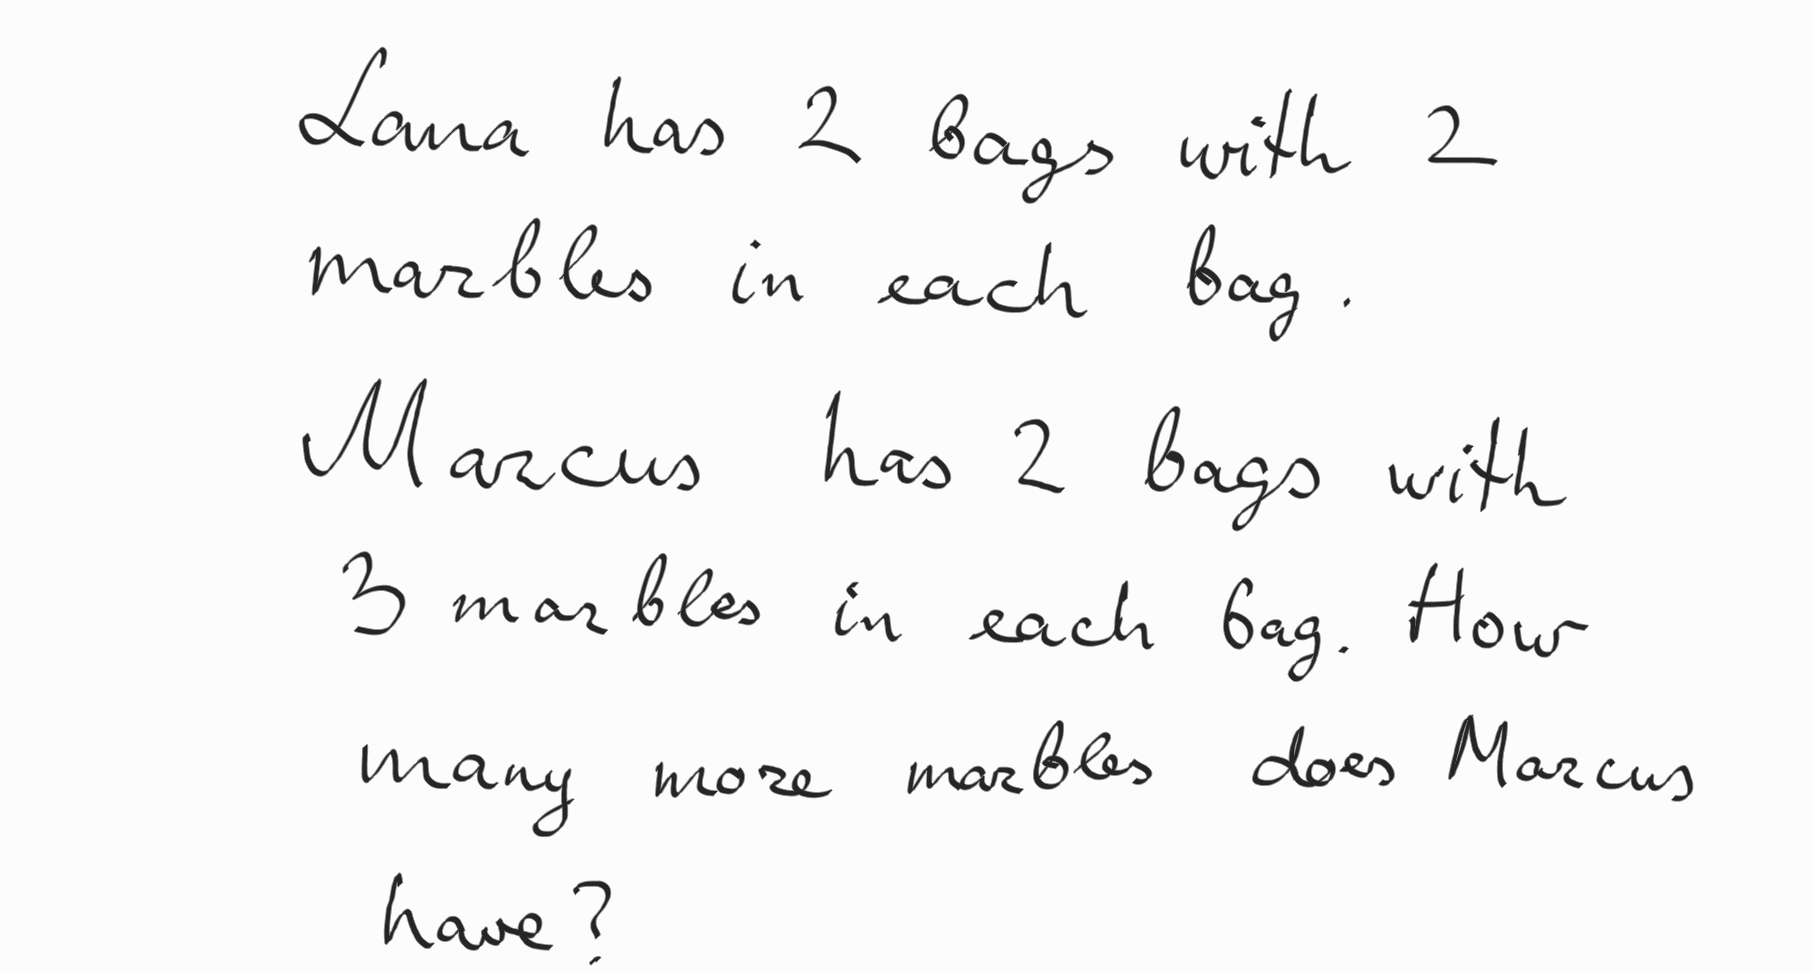 Lana has 2 bags with 2
marbles in each bag.
Marcus has 2 bags with
3 marbles in each bag. How
many more marbles does Marcus
have?